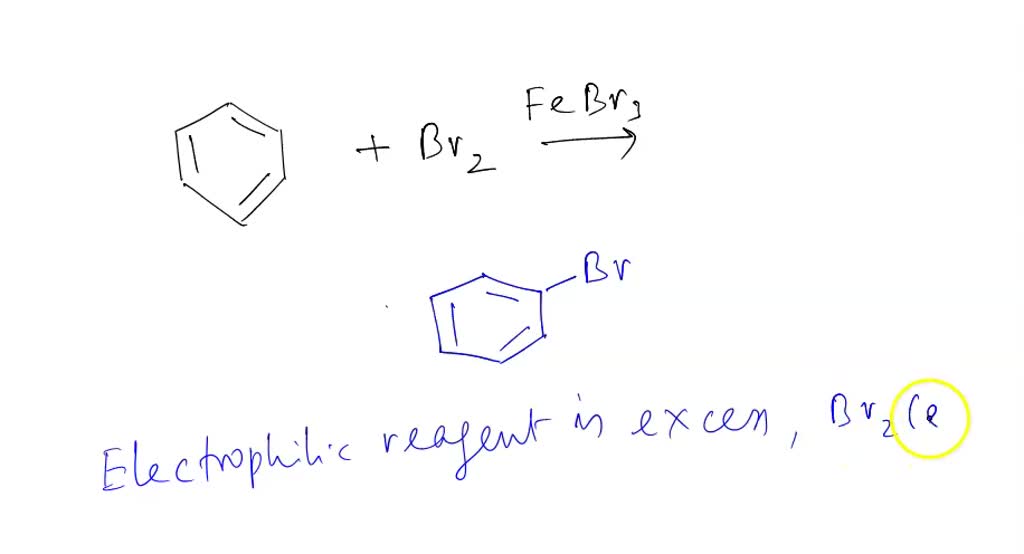 FeBr3
+ Br2
Br
Electrophilic reagent in excess, Br2 (e